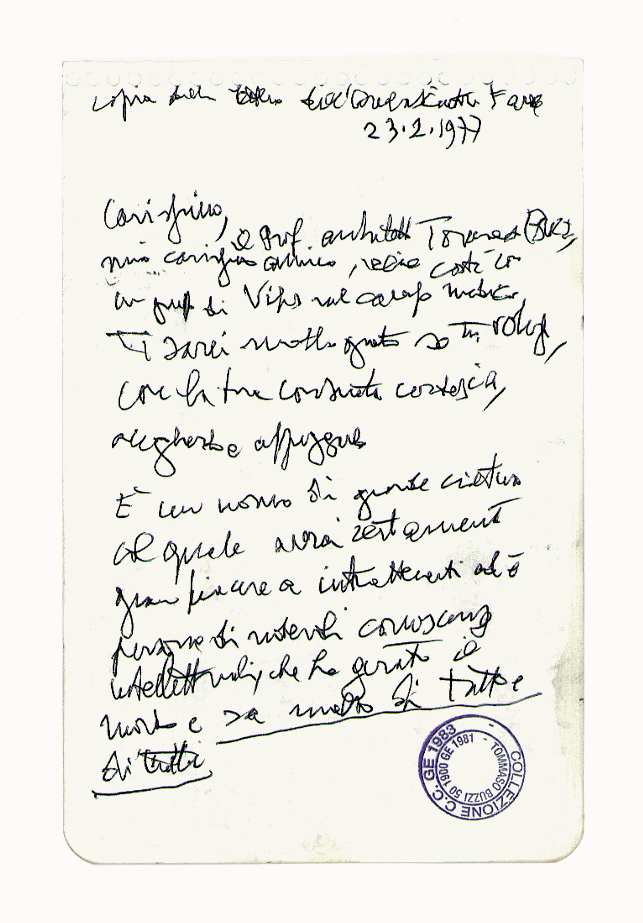 copia della lettera dell'
23.2.1977
Carissimo,
il Prof. architetto Tomaso Buzzi,
mio carissimo amico, viene costì con
un gruppo di Vips nel campo
Ti sarei molto grato se tu
con la tua consueta cortesia,
accoglierlo e
È un uomo di grande cultura
al quale avrai certamente
gran piacere a intrattenerti ed è
persona di notevoli conoscenze
intellettuali, che ha girato il
mondo e sa molto di tutto e
di tutti
COLLEZIONE C.C. GE 1983 -
TOMMASO BUZZI 50 1900 GE 1981 -